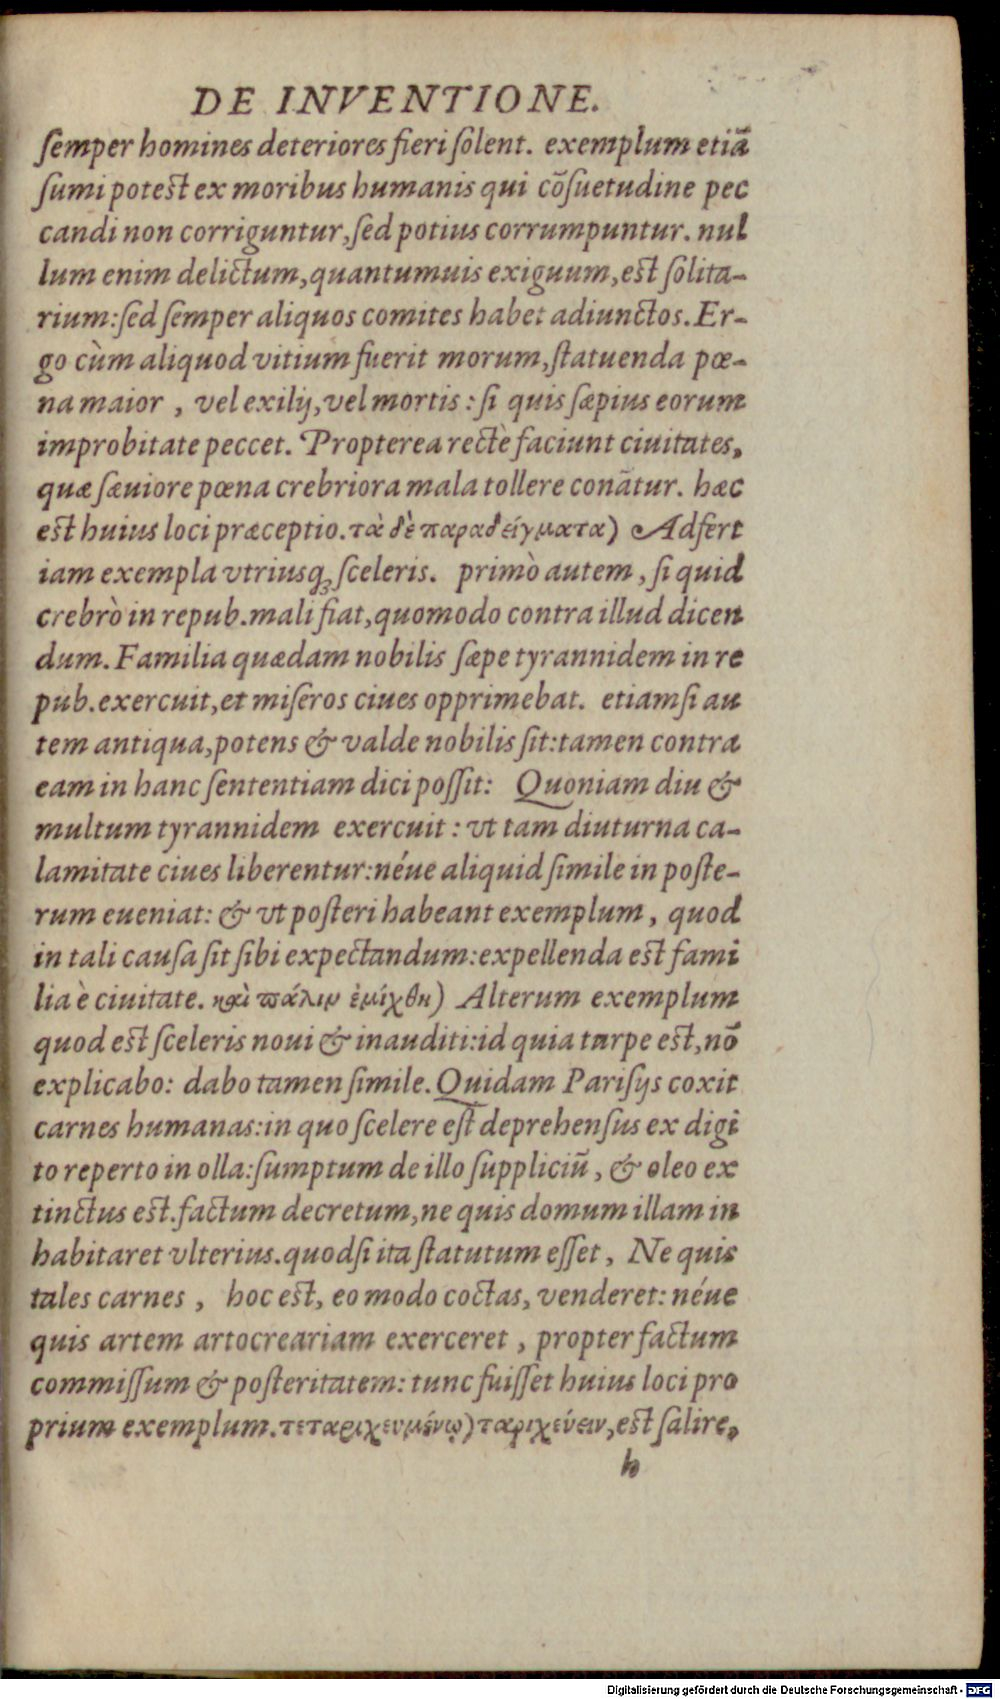 DE INVENTIONE.
semper homines deteriores fieri solent. exemplum etiã
sumi potest ex moribus humanis qui cõsuetudine pec
candi non corriguntur, sed potius corrumpuntur. nul
lum enim delictum, quantumuis exiguum, est solita-
rium: sed semper aliquos comites habet adiunctos. Er-
go cùm aliquod vitium fuerit morum, statuenda pœ-
na maior , vel exilij, vel mortis : si quis sæpius eorum
improbitate peccet. Propterea rectè faciunt ciuitates,
quæ sæuiore pœna crebriora mala tollere conãtur. hæc
est huius loci præceptio. τὰ δὲ παραδείγματα) Adfert
iam exempla vtriusq; sceleris. primò autem, si quid
crebrò in repub. mali fiat, quomodo contra illud dicen
dum. Familia quædam nobilis sæpe tyrannidem in re
pub. exercuit, et miseros ciues opprimebat. etiamsi au
tem antiqua, potens & valde nobilis sit: tamen contra
eam in hanc sententiam dici possit: Quoniam diu &
multum tyrannidem exercuit : vt tam diuturna ca-
lamitate ciues liberentur: néue aliquid simile in poste-
rum eueniat: & vt posteri habeant exemplum, quod
in tali causa sit sibi expectandum: expellenda est fami
lia è ciuitate. καὶ πάλιν ἐμίχθη) Alterum exemplum
quod est sceleris noui & inauditi: id quia turpe est, nõ
explicabo: dabo tamen simile. Quidam Parisijs coxit
carnes humanas: in quo scelere est deprehensus ex digi
to reperto in olla: sumptum de illo suppliciũ, & oleo ex
tinctus est. factum decretum, ne quis domum illam in
habitaret vlterius. quodsi ita statutum esset, Ne quis
tales carnes , hoc est, eo modo coctas, venderet: néue
quis artem artocreariam exerceret , propter factum
commissum & posteritatem: tunc fuisset huius loci pro
prium exemplum. τεταριχευμένῳ) ταριχεύειν, est salire,
h
Digitalisierung gefördert durch die Deutsche Forschungsgemeinschaft - DFG